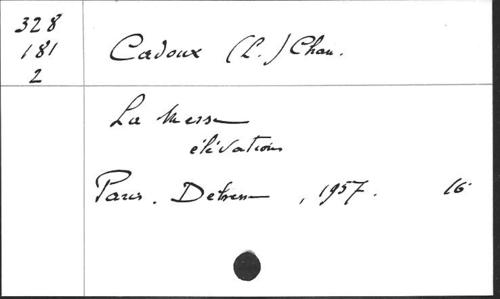 328
181
2
Cadoux (L.) Chan.
La Messe
élévations
Paris. Debresse, 1957. 16°